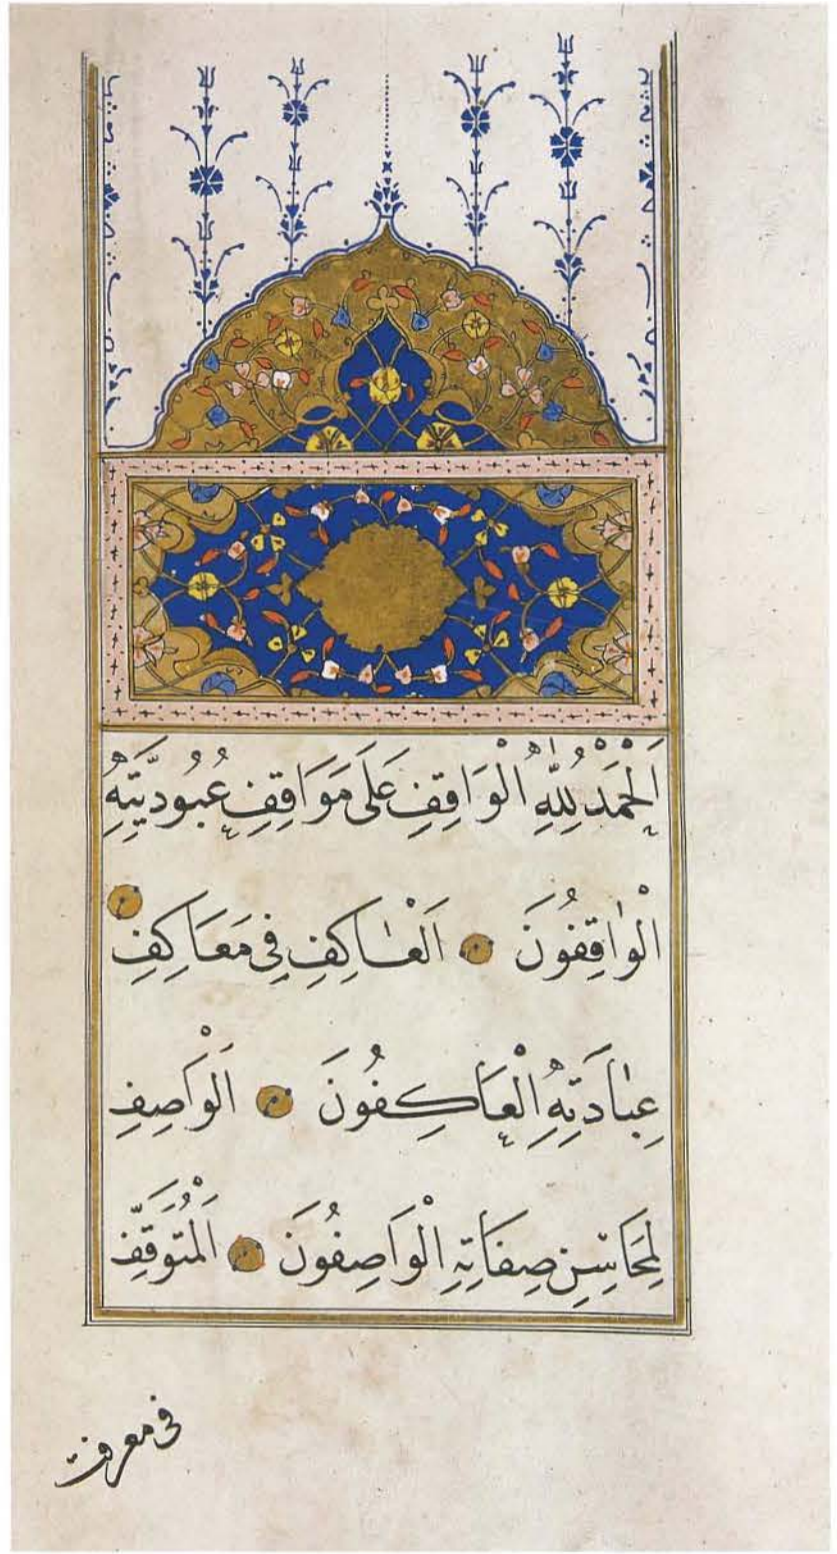 اَلْحَمْدُ لِلّٰهِ الْوَاقِفِ عَلَى مَوَاقِفِ عُبُودِيَّتِهِ
الْوٰاقِفُونَ اَلْعٰاكِفِ فِي مَعَاكِفِ
عِبٰادَتِهِ الْعَاكِفُونَ اَلْوَاصِفِ
لِمَحَاسِنِ صِفَاتِهِ الْوَاصِفُونَ اَلْمُتَوَقِّفِ
فى معرفت